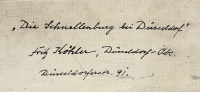 „Die Schnellenburg bei Düsseldorf"
Fritz Köhler, Düsseldorf-Obc.
Düsseldorferstr. 91.